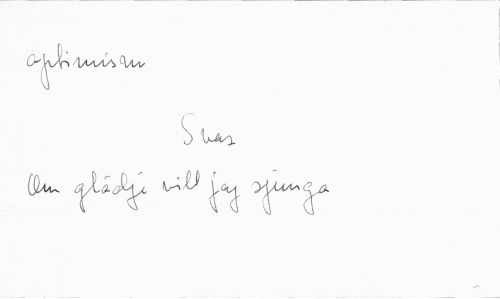 optimism
Svar
Om glädje vill jag sjunga